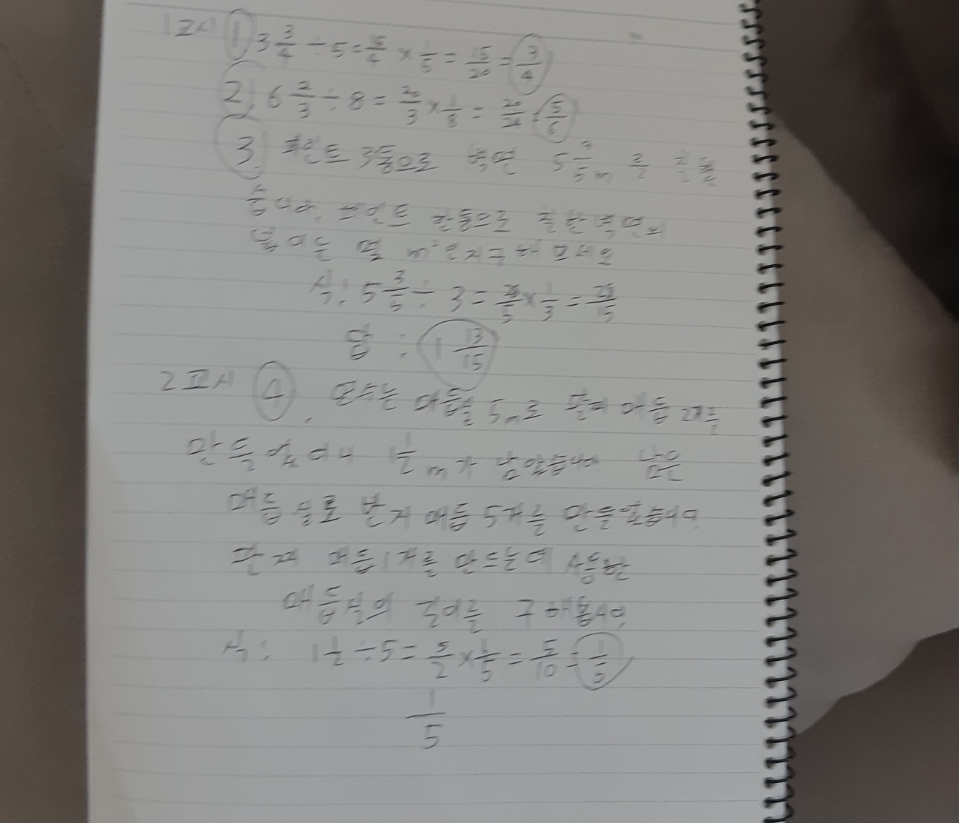 1교시 1) 3 3/4 ÷ 5 = 15/4 × 1/5 = 15/20 = 3/4
2) 6 2/3 ÷ 8 = 20/3 × 1/8 = 20/24 = 5/6
3. 페인트 3통으로 벽면 5 3/5 m 를
습니다. 페인트 한통으로 칠한 벽면의
넓이는 몇 m² 인지 구해 보세요
식: 5 3/5 ÷ 3 = 28/5 × 1/3 = 28/15
답 : 1 13/15
2교시 4. 매듭실 5m로 팔찌 매듭
만들었더니 1 1/2 m가 남았습니다 남은
매듭실로 반지 매듭 5개를 만들었습니다.
매듭 1개를 만드는데 사용한
매듭실의 길이를 구해
식: 1 1/2 ÷ 5 = × 1/5 = 5/10 =
1/5